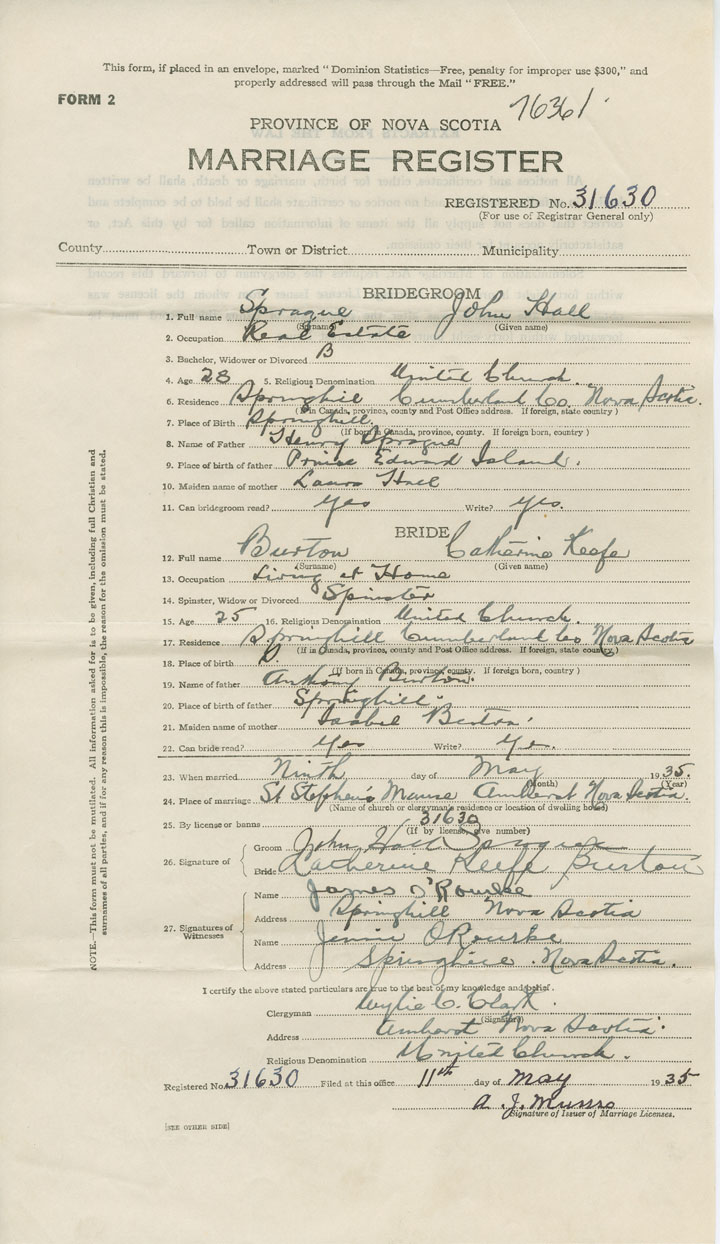 This form, if placed in an envelope, marked "Dominion Statistics—Free, penalty for improper use $300," and
properly addressed will pass through the Mail "FREE."
FORM 2
76361
PROVINCE OF NOVA SCOTIA
MARRIAGE REGISTER
REGISTERED No. 31630
(For use of Registrar General only)
County Town or District Municipality
BRIDEGROOM
1. Full name Sprague John Hall
(Surname) (Given name)
2. Occupation Real Estate
3. Bachelor, Widower or Divorced B
4. Age 28 5. Religious Denomination United Church.
6. Residence Springhill Cumberland Co. Nova Scotia.
(If in Canada, province, county and Post Office address. If foreign, state country)
7. Place of Birth Springhill
(If born in Canada, province, county. If foreign born, country)
8. Name of Father Henry Sprague
9. Place of birth of father Prince Edward Island.
10. Maiden name of mother Laura Hall
11. Can bridegroom read? Yes Write? Yes.
BRIDE
12. Full name Burton Catherine Keefe
(Surname) (Given name)
13. Occupation Living at Home
14. Spinster, Widow or Divorced Spinster
15. Age 25 16. Religious Denomination United Church.
17. Residence Springhill Cumberland Co Nova Scotia
(If in Canada, province, county and Post Office address. If foreign, state country)
18. Place of birth
(If born in Canada, province, county. If foreign born, country)
19. Name of father Anthony Burton.
20. Place of birth of father Springhill.
21. Maiden name of mother Isabel
22. Can bride read? Yes Write? Yes.
23. When married Ninth day of May 1935.
(Month) (Year)
24. Place of marriage St Stephen's Manse Amherst Nova Scotia.
(Name of church or clergyman's residence or location of dwelling house)
25. By license or banns 31630
(If by license, give number)
26. Signature of
Groom John Hall Sprague
Bride Catherine Keefe Burton
27. Signatures of Witnesses
Name James O'Rourke
Address Springhill Nova Scotia
Name Jennie O'Rourke
Address Springhill. Nova Scotia.
I certify the above stated particulars are true to the best of my knowledge and belief.
Clergyman Wylie C. Clark.
(Signature)
Address Amherst Nova Scotia.
Religious Denomination United Church.
Registered No. 31630 Filed at this office 11th day of May 1935
A. J. Munro
Signature of Issuer of Marriage Licenses.
[SEE OTHER SIDE]
NOTE.—This form must not be mutilated. All information asked for is to be given, including full Christian and
surnames of all parties, and if for any reason this is impossible, the reason for the omission must be stated.